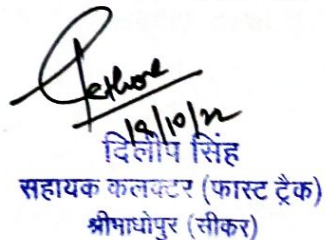 18/10/22
दिलीप सिंह
सहायक कलक्टर (फास्ट ट्रैक)
श्रीमाधोपुर (सीकर)